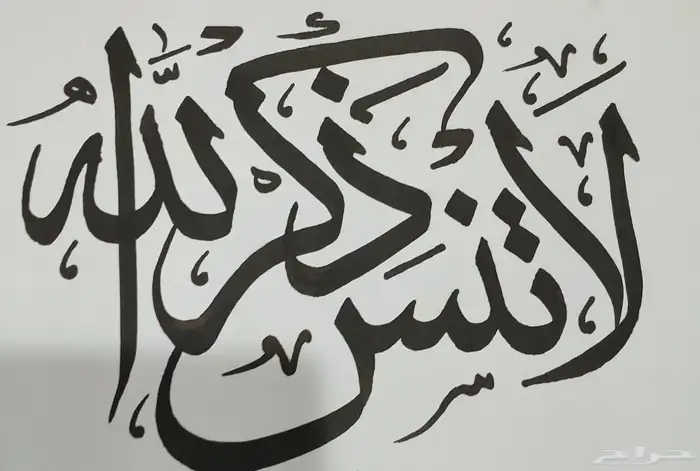 لا تنس ذكر الله
حراج